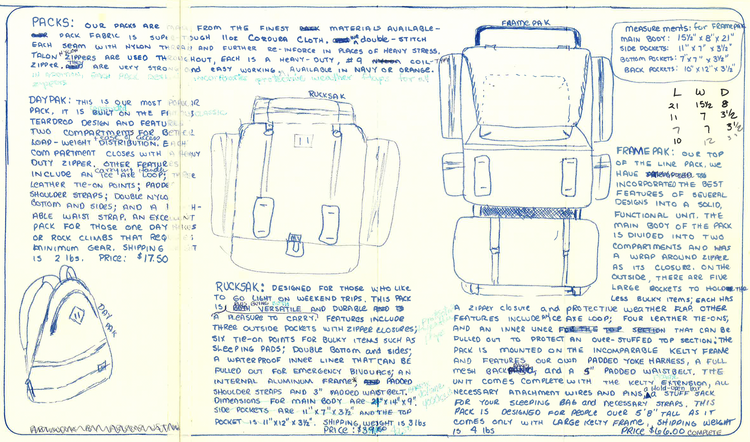 PACKS: OUR PACKS ARE FROM THE FINEST MATERIALS AVAILABLE-
PACK FABRIC IS SUPER-TOUGH 11oz CORDURA CLOTH, double-STITCH
EACH SEAM WITH NYLON AND FURTHER RE-INFORCE IN PLACES OF HEAVY STRESS.
TALON ZIPPERS ARE USED THROUGHOUT, EACH IS A HEAVY-DUTY, #9 COIL-
ZIPPER. ARE VERY STRONG AND EASY WORKING. AVAILABLE IN NAVY OR ORANGE.
DAYPAK: THIS IS OUR MOST POPULAR
PACK, IT IS BUILT ON THE CLASSIC
TEARDROP DESIGN AND FEATURES
TWO COMPARTMENTS FOR
ease of access
LOAD-WEIGHT DISTRIBUTION. EACH
COMPARTMENT CLOSES WITH A HEAVY
DUTY ZIPPER. OTHER FEATURES
carrying handle
INCLUDE AN ICE AXE LOOP; THREE
LEATHER TIE-ON POINTS; PADDED
SHOULDER STRAPS; DOUBLE NYLON
BOTTOM AND SIDES; AND A
ABLE WAIST STRAP. AN EXCELLENT
PACK FOR THOSE ONE DAY
OR ROCK CLIMBS THAT REQUIRE
MINIMUM GEAR. SHIPPING
IS 2 lbs. PRICE: $17.50
DAY PAK
RUCKSAK
RUCKSAK: DESIGNED FOR THOSE WHO LIKE
TO GO LIGHT ON WEEKEND TRIPS. THIS PACK
IS BOTH VERSATILE AND DURABLE AND
A PLEASURE TO CARRY. FEATURES INCLUDE
THREE OUTSIDE POCKETS WITH ZIPPER CLOSURES;
SIX TIE-ON POINTS FOR BULKY ITEMS SUCH AS
SLEEPING PADS; DOUBLE BOTTOM and SIDES;
A WATERPROOF INNER LINER THAT CAN BE
PULLED OUT FOR EMERGENCY BIVOUACS; AN
INTERNAL ALUMINUM FRAME; PADDED
SHOULDER STRAPS AND 3" PADDED WAISTBELT.
DIMENSIONS FOR MAIN BODY ARE 21"x14"x9".
SIDE POCKETS ARE 11"x7"x3½" AND THE TOP
POCKET IS 11"x12"x3½". SHIPPING WEIGHT IS 3 lbs
PRICE:
FRAMEPAK
measurements: for FRAMEPAK
MAIN BODY: 15½" x 8" x 21"
SIDE POCKETS: 11" x 7" x 3½"
BOTTOM POCKETS: 7" x 7" x 3½"
BACK POCKETS: 10" x 12" x 3½"
L W D
21 15½ 8
11 7 3½
7 7 3½
10 12
FRAMEPAK: OUR TOP
OF THE LINE PACK. WE
HAVE
INCORPORATED THE BEST
FEATURES OF SEVERAL
DESIGNS INTO A SOLID,
FUNCTIONAL UNIT. THE
MAIN BODY OF THE PACK
IS DIVIDED INTO TWO
COMPARTMENTS AND WAS
A WRAP AROUND ZIPPER
AS ITS CLOSURE. ON THE
OUTSIDE, THERE ARE FIVE
LARGE POCKETS TO HOLD
LESS BULKY ITEMS; EACH HAS
A ZIPPER CLOSURE and PROTECTIVE WEATHER FLAP. OTHER
FEATURES INCLUDE: ICE AXE LOOP; FOUR LEATHER TIE-ONS;
AND AN INNER LINER FOR THE TOP SECTION THAT CAN BE
PULLED OUT TO PROTECT AN OVER-STUFFED TOP SECTION; THE
PACK IS MOUNTED ON THE INCOMPARABLE KELTY FRAME
AND FEATURES OUR OWN PADDED YOKE HARNESS, A FULL
MESH BACK, AND A 5" PADDED WAISTBELT. THE
UNIT COMES COMPLETE WITH THE KELTY EXTENSION, ALL
a Hold-open bar
NECESSARY ATTACHMENT WIRES AND PINS, A STUFF SACK
FOR YOUR SLEEPING BAG AND NECESSARY STRAPS. THIS
PACK IS DESIGNED FOR PEOPLE OVER 5'8" TALL AS IT
COMES ONLY WITH LARGE KELTY FRAME. SHIPPING WEIGHT
IS 4 lbs PRICE $66.00 COMPLETE